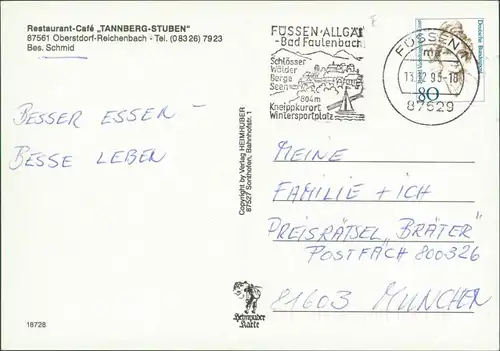 Restaurant-Café „TANNBERG-STUBEN"
87561 Oberstdorf-Reichenbach - Tel. (08326) 7923
Bes. Schmid
BESSER ESSEN –
BESSE LEBEN
18728
Copyright by Verlag HEIMHUBER
87527 Sonthofen, Bahnhofstr. 1
FÜSSEN·ALLGÄ
-Bad Faulenbach
Schlösser
Wälder
Berge
Seen
804m
Kneippkurort
Wintersportplatz
FÜSSEN 1
ma
-18
87529
80
Deutsche Bundespost
MEINE
FAMILIE + ICH
PREISRÄTSEL „BRÄTER"
POSTFACH 800326
81603 MÜNCHEN
Heimhuber
Karte